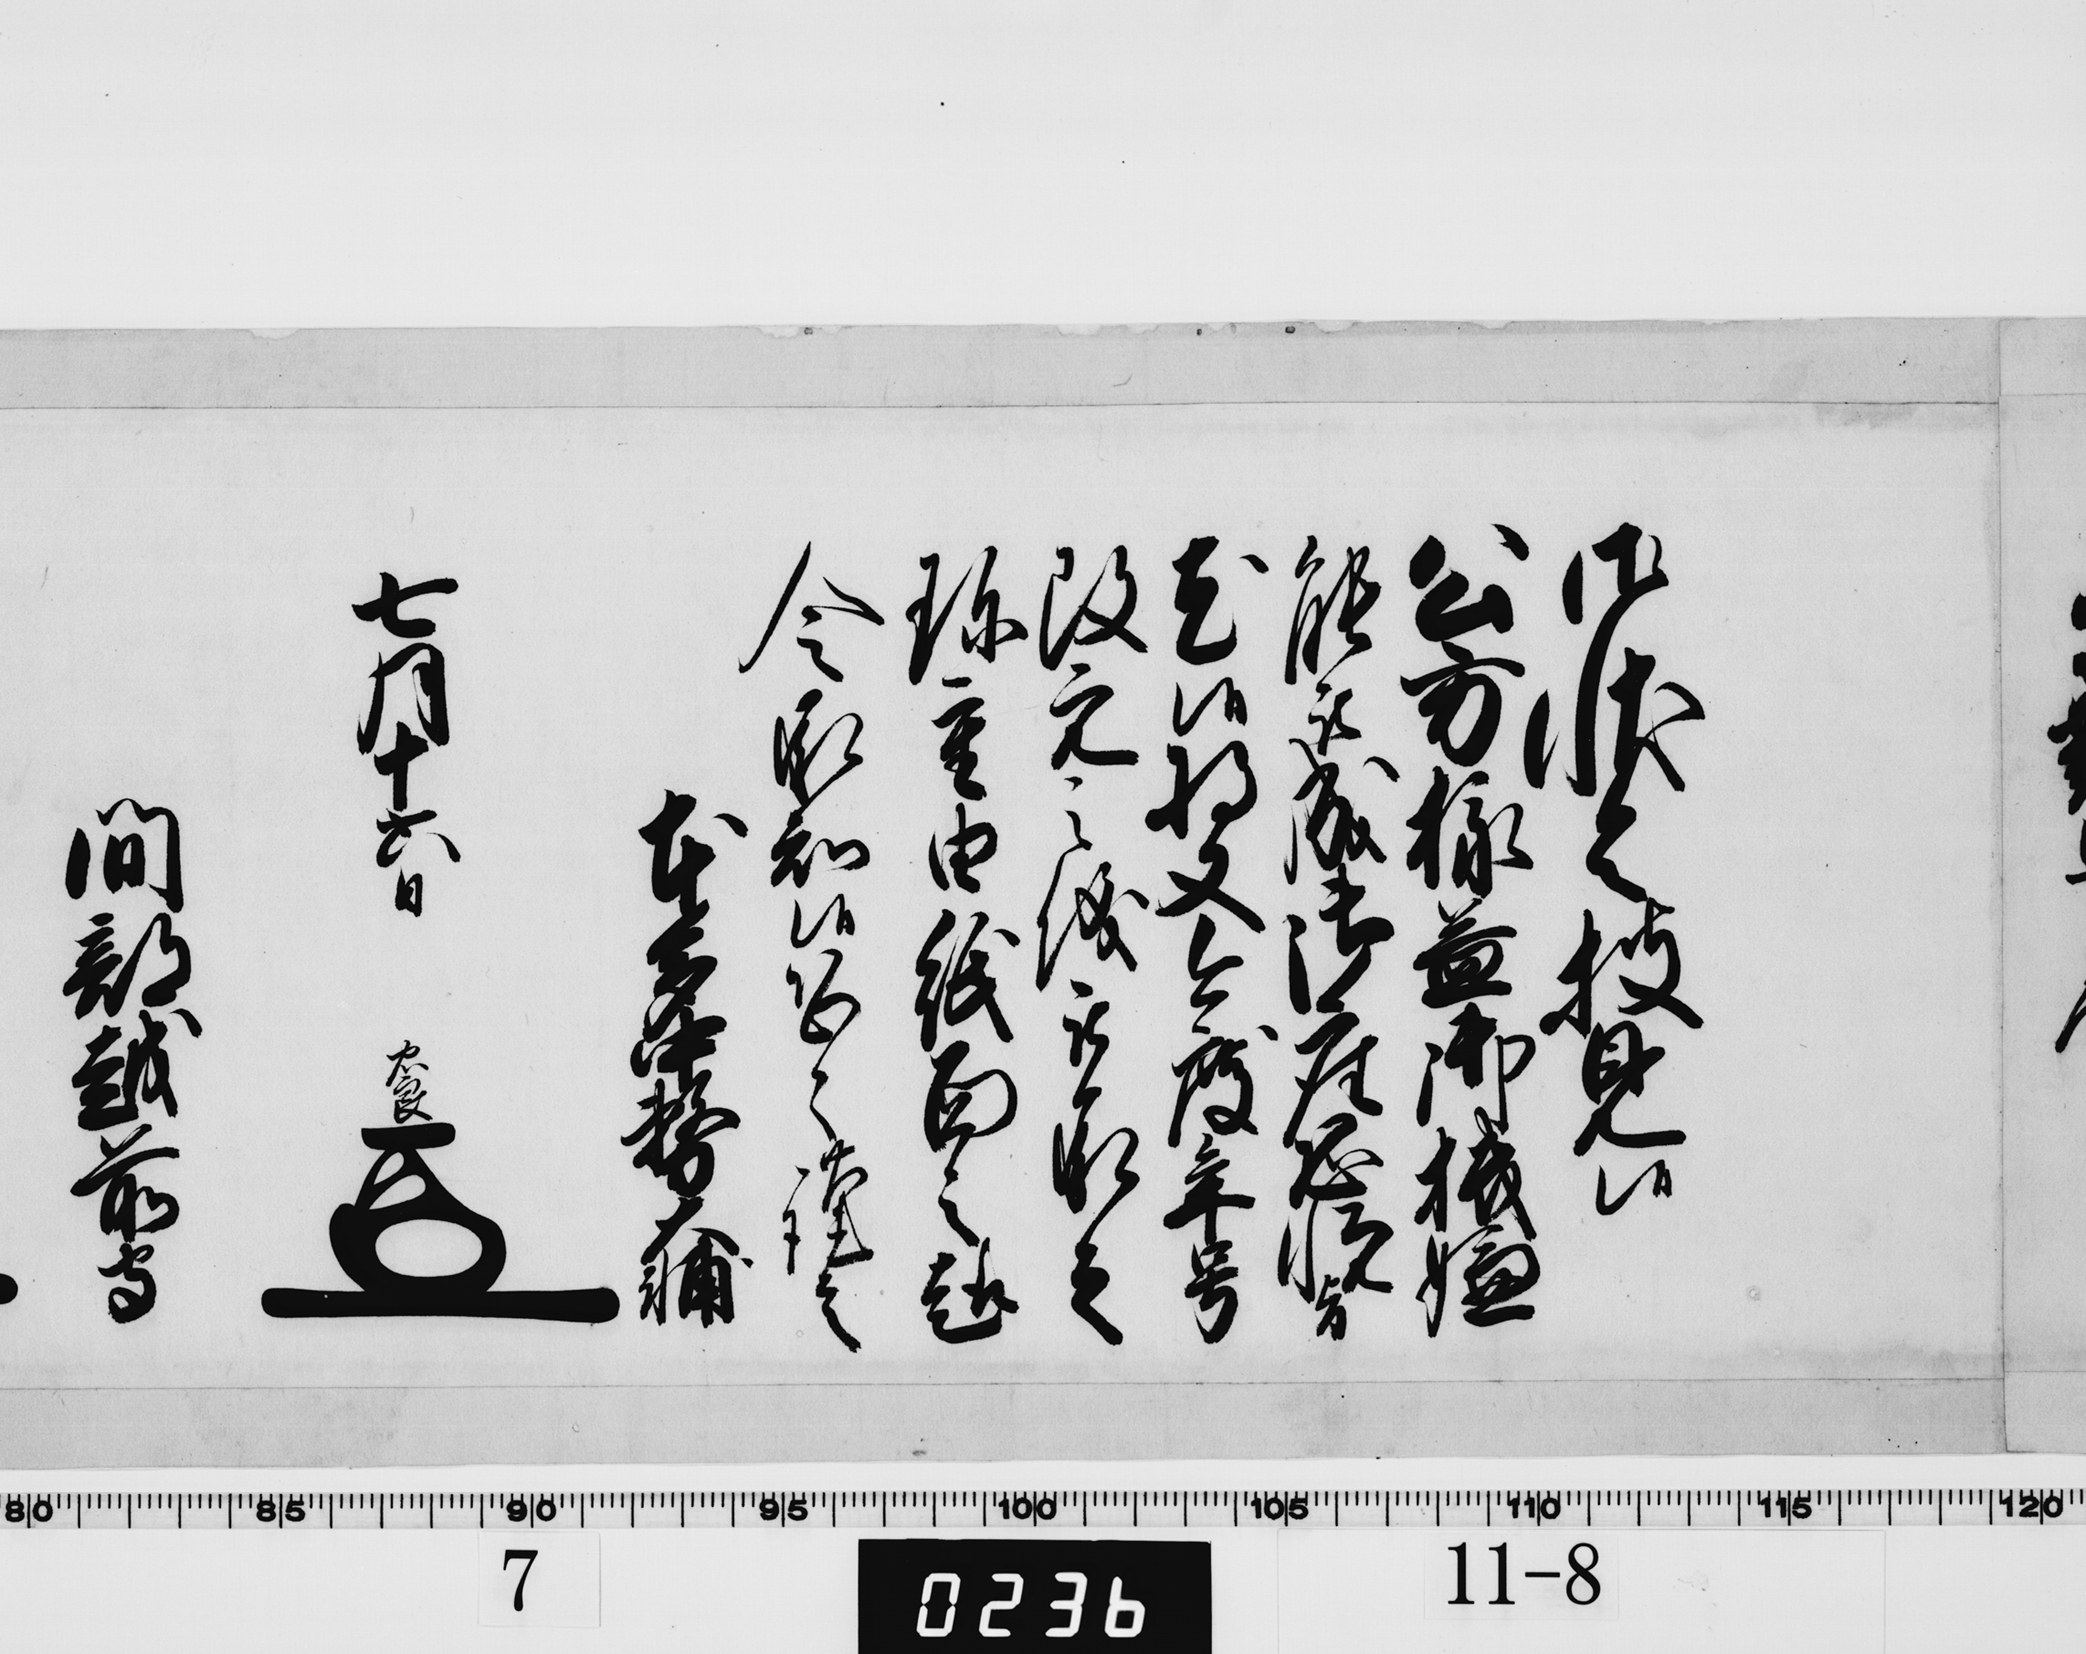 御状令披見候
公方様益御機嫌
能被成御座恐悦旨
尤候将又今度年号
改元之儀被承之
珍重由紙面之趣
令承知候恐々謹言
本多中務大輔
七月十六日 忠良
間部越前守
80 85 90 95 100 105 110 115 120
7 0236 11-8